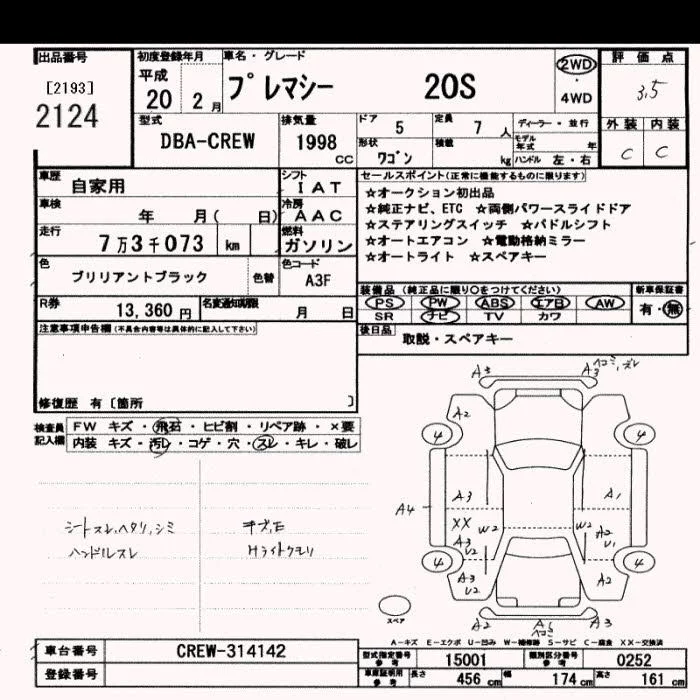 出品番号
[2193]
2124
初度登録年月
平成
20 2月
車名・グレード
プレマシー 20S
2WD
・
4WD
評価点
3.5
型式
DBA-CREW
排気量
1998
cc
ドア 5
定員 7人
ディーラー・並行
モデル年式 年
形状 ワゴン
積載 kg
ハンドル 左・右
外装 内装
C C
車歴 自家用
シフト IAT
車検 年 月( 日)
冷房 AAC
走行 7万3千073 km
燃料 ガソリン
色 ブリリアントブラック 色替
色コード A3F
R券 13,360円
名変通知期限 月 日
セールスポイント(正常に機能するものに限ります)
☆オークション初出品
☆純正ナビ、ETC ☆両側パワースライドドア
☆ステアリングスイッチ ☆パドルシフト
☆オートエアコン ☆電動格納ミラー
☆オートライト ☆スペアキー
装備品(純正品に限り○をつけてください)
PS PW ABS エアB AW
SR ナビ TV カワ
新車保証書
有・無
後日品 取説・スペアキー
注意事項申告欄(不具合内容等は具体的に記入して下さい)
修復歴 有〔箇所 〕
検査員記入欄
FW キズ・飛石・ヒビ割・リペア跡・×要
内装 キズ・汚レ・コゲ・穴・スレ・キレ・破レ
シートスレ、ヘタリ、シミ
ハンドルスレ
キズ、E
Hライトクモリ
A3 A3 ヘコミ、ズレ
A2
4 4
A3 A1
A4
XX W2 W2 A2
A3 U1
U2
4 4
A3 A2
U2
A2 A1 A3
ヘコミ
スペア
A-キズ E-エクボ U-凹み W-補修跡 S-サビ C-腐食 XX-交換済
車台番号 CREW-314142
登録番号
型式指定番号 参考 15001
類別区分番号 参考 0252
車庫証明用 参考 長さ 456cm 幅 174cm 高さ 161cm